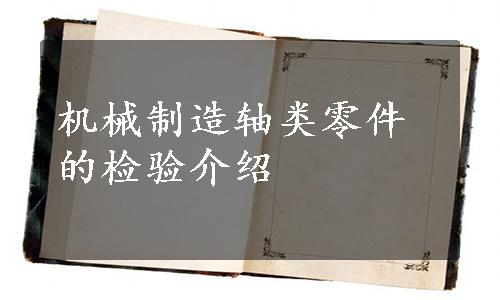 机械制造轴类零件
的检验介绍